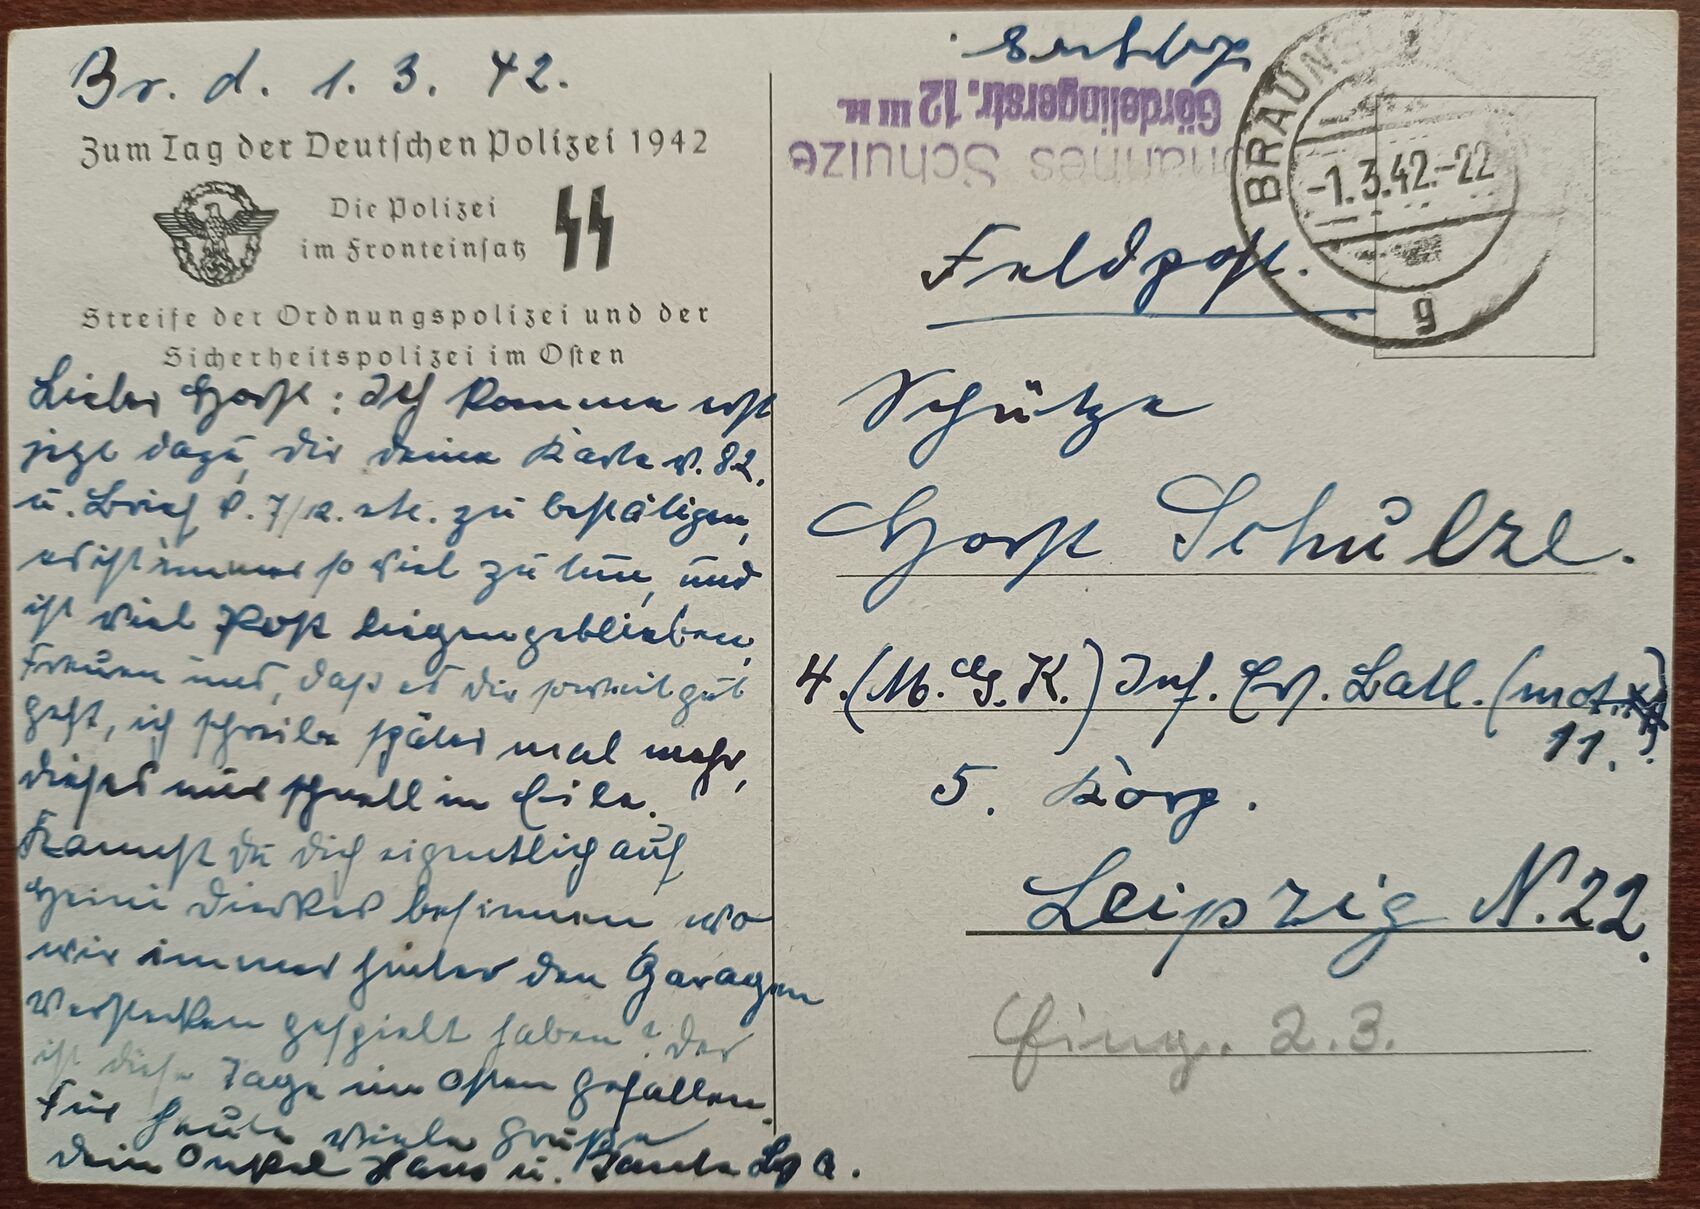 Br. d. 1. 3. 42.
Zum Tag der Deutschen Polizei 1942
Die Polizei
im Fronteinsatz
Streife der Ordnungspolizei und der
Sicherheitspolizei im Osten
Lieber Horst: Ich komme erst
jetzt dazu, dir deine Karte v. 8.2.
u. Brief v. 7/12. etc. zu bestätigen,
es ist immer so viel zu tun, und
ist viel Post liegengeblieben,
Freuen uns, daß es dir soweit gut
geht, ich schreibe später mal mehr,
dieses nur schnell in Eile.
Kannst du dich eigentlich auf
Heini Dierkes besinnen wo
wir immer hinter den Garagen
Verstecken gespielt haben? Der
ist diese Tage im Osten gefallen.
Für heute viele Grüße
dein Onkel Hans u. Tante
Johannes Schulze
Gördelingerstr. 12 III H.
BRAUNSCHW
-1.3.42.-22
g
Feldpost.
Schütze
Horst Schulze.
4. (M.G.K.) Inf. Ers. Batl. (mot.)
11.
5. Korp.
Leipzig N.22.
Eing. 2.3.